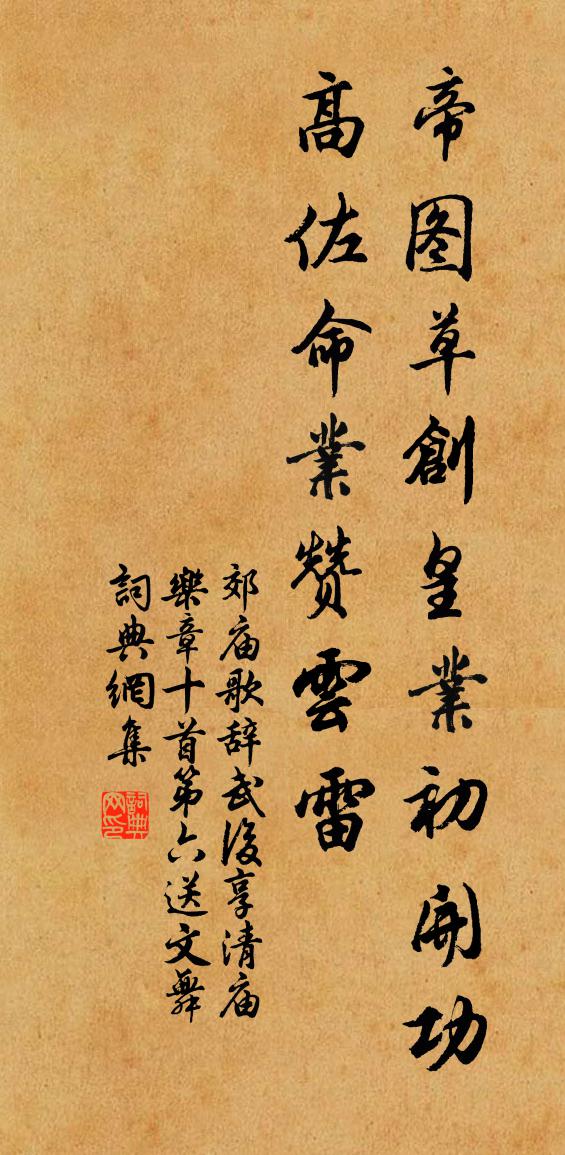 帝图草創皇業初開功
高佐命業赞雲雷
郊庙歌辞武後享清庙
樂章十首第六送文舞
詞典網集
詞典
网印